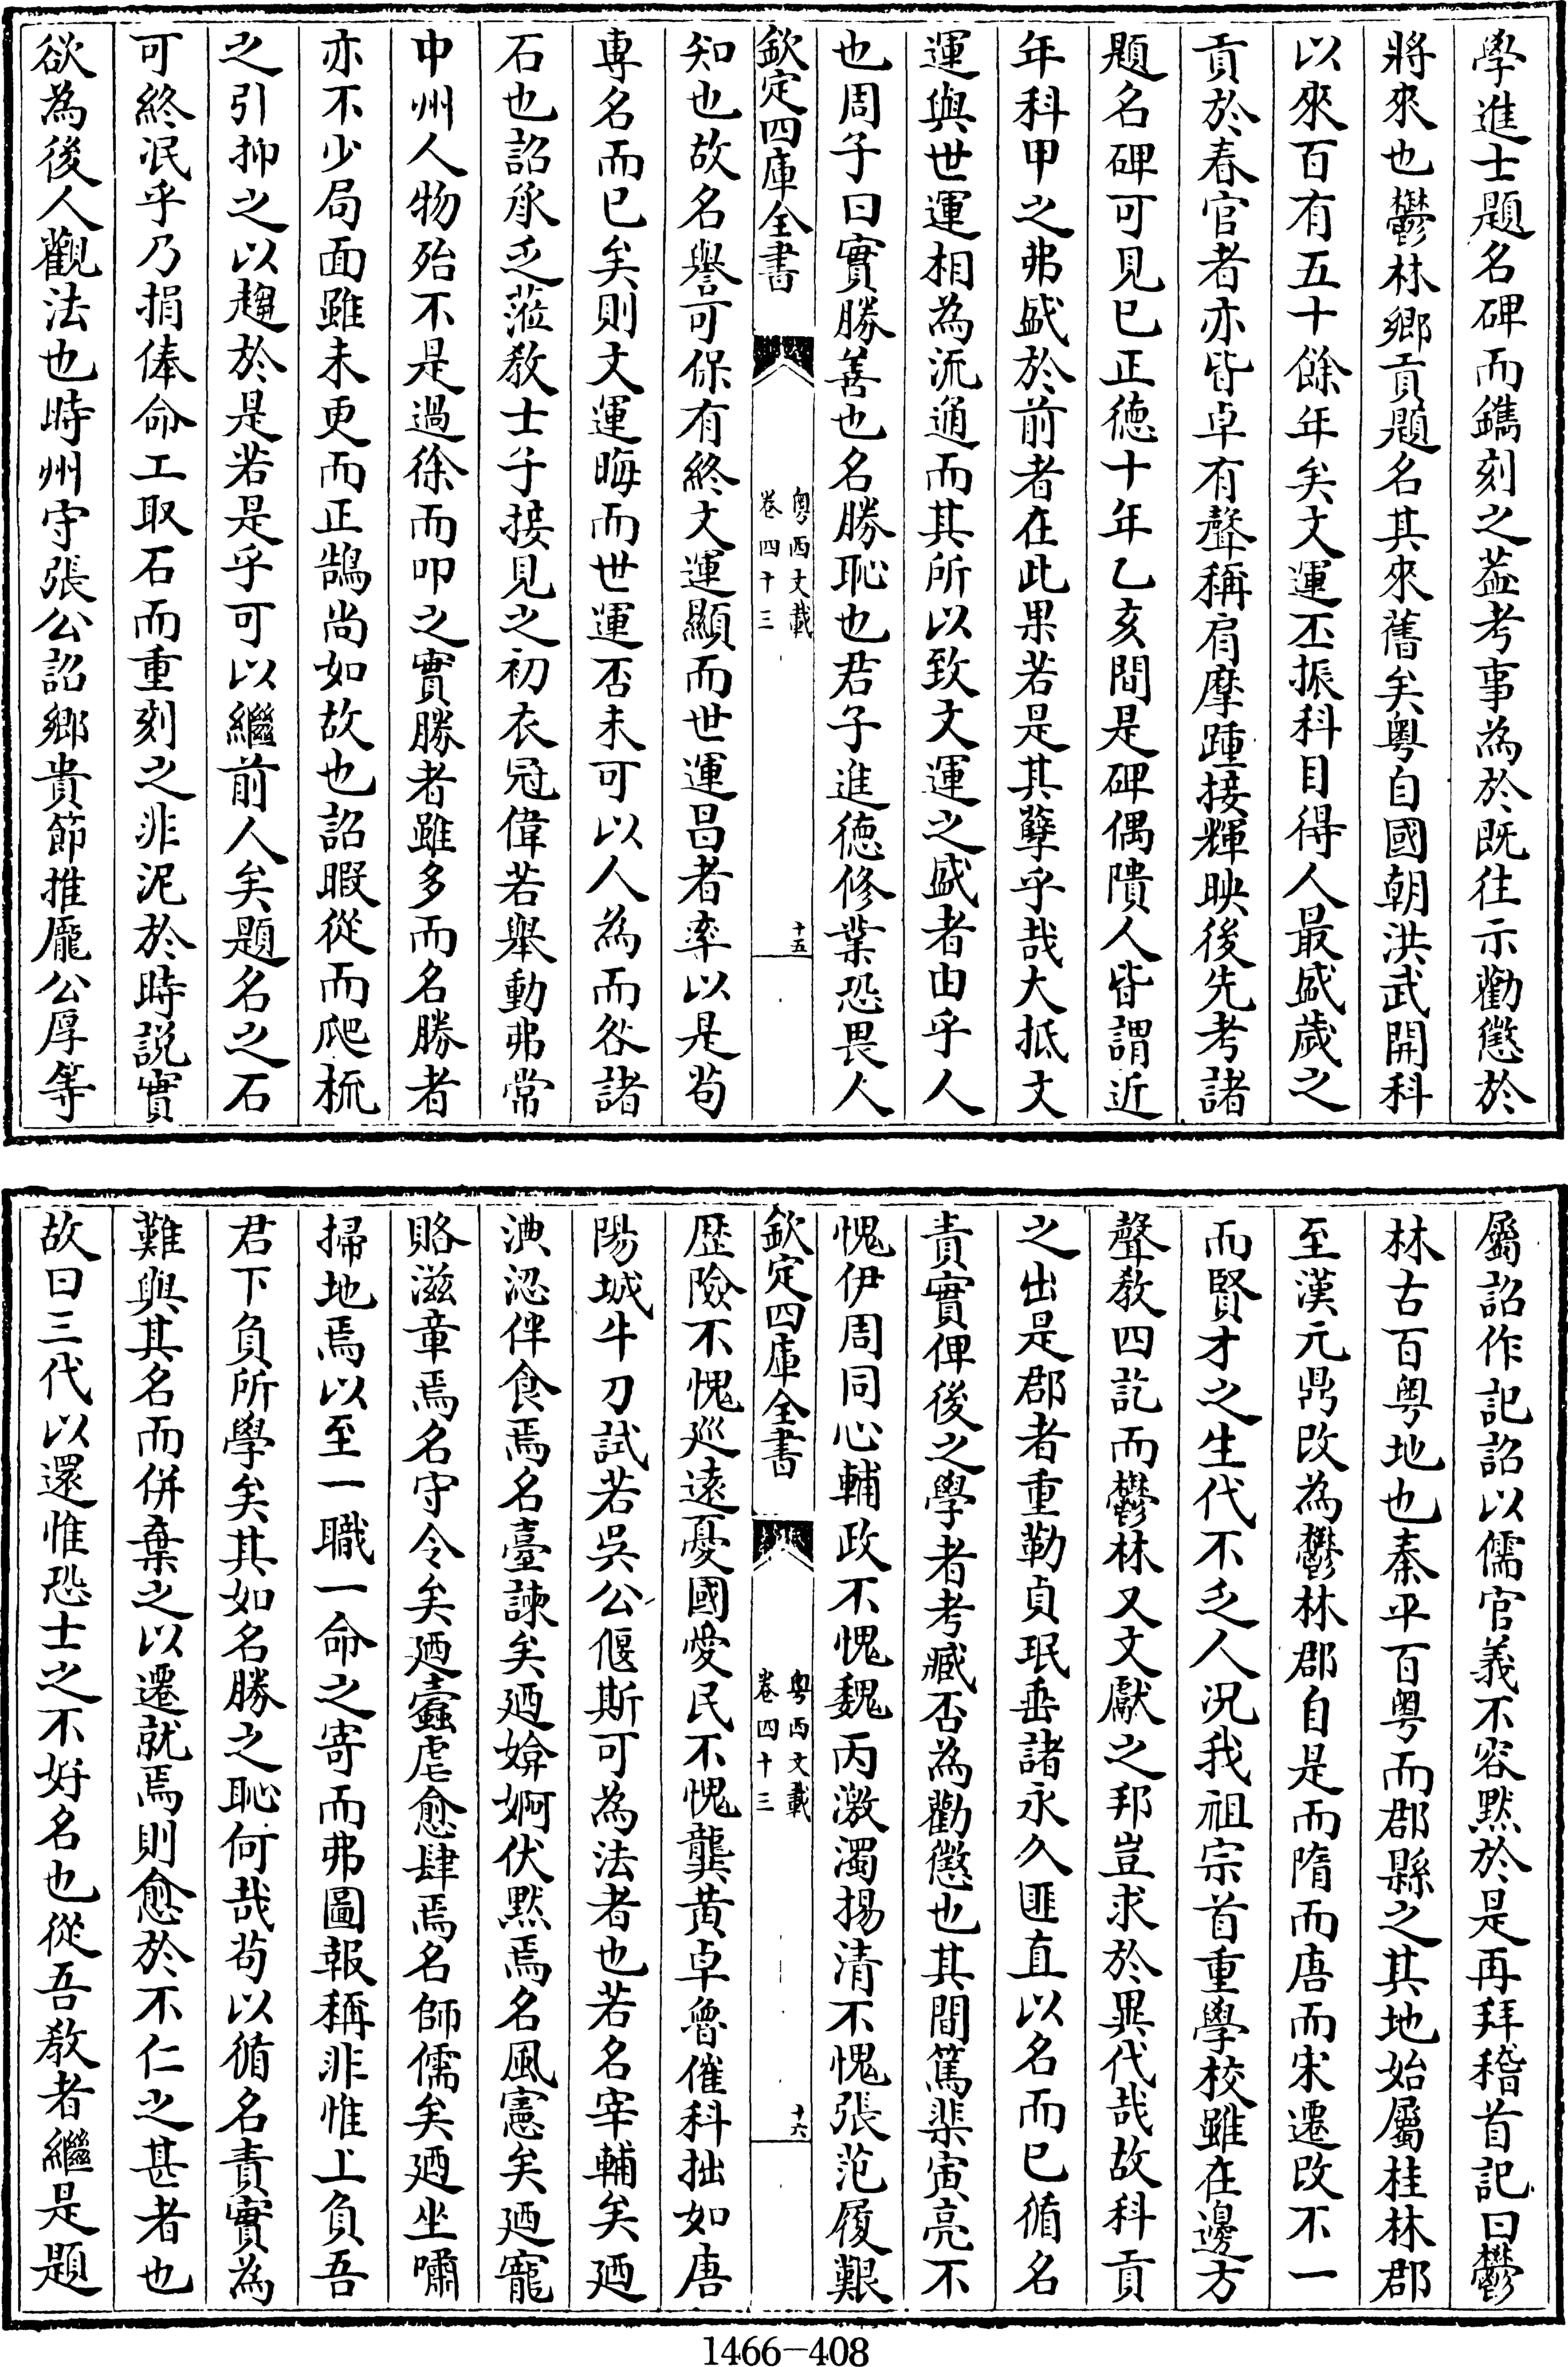 學進士題名碑而鐫刻之葢考事為於既往示勸懲於
將來也鬱林鄉貢題名其來舊矣粤自國朝洪武開科
以來百有五十餘年矣文運丕振科目得人最盛歲之
貢於春官者亦皆卓有聲稱肩摩踵接輝映後先考諸
題名碑可見已正德十年乙亥間是碑偶隤人皆謂近
年科甲之弗盛於前者在此果若是其孽乎哉大抵文
運與世運相為流通而其所以致文運之盛者由乎人
也周子曰實勝善也名勝恥也君子進德修業恐畏人
欽定四庫全書
粤西文載
卷四十三
十五
知也故名譽可保有終文運顯而世運昌者率以是茍
專名而已矣則文運晦而世運否未可以人為而咎諸
石也詔承乏蒞教士子接見之初衣冠偉若舉動弗常
中州人物殆不是過徐而叩之實勝者雖多而名勝者
亦不少局面雖未更而正鵠尚如故也詔暇從而爬梳
之引抑之以趨於是若是乎可以繼前人矣題名之石
可終泯乎乃捐俸命工取石而重刻之非泥於時説實
欲為後人觀法也時州守張公詔鄉貴節推龎公厚等
屬詔作記詔以儒官義不容默於是再拜稽首記曰鬱
林古百粤地也秦平百粤而郡縣之其地始屬桂林郡
至漢元鼎改為鬱林郡自是而隋而唐而宋遷改不一
而賢才之生代不乏人况我祖宗首重學校雖在邊方
聲教四訖而鬱林又文獻之邦豈求於異代哉故科貢
之出是郡者重勒貞珉垂諸永久匪直以名而已循名
責實俾後之學者考臧否為勸懲也其間篤棐寅亮不
愧伊周同心輔政不愧魏丙激濁揚清不愧張范履艱
欽定四庫全書
粤西文載
卷四十三
十六
歴險不愧巡遠憂國愛民不愧龔黄卓魯催科拙如唐
陽城牛刀試若吳公偃斯可為法者也若名宰輔矣廼
淟涊伴食焉名臺諫矣廼媕婀伏默焉名風憲矣廼寵
賂滋章焉名守令矣廼蠧虐愈肆焉名師儒矣廼坐嘯
掃地焉以至一職一命之寄而弗圖報稱非惟上負吾
君下負所學矣其如名勝之恥何哉茍以循名責實為
難與其名而併棄之以遷就焉則愈於不仁之甚者也
故曰三代以還惟恐士之不好名也從吾教者繼是題
1466-408